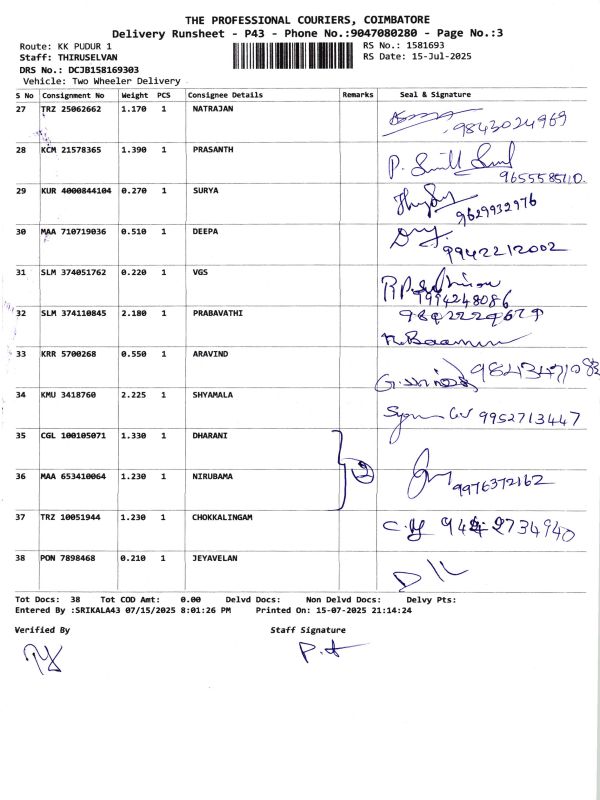 THE PROFESSIONAL COURIERS, COIMBATORE
Delivery Runsheet - P43 - Phone No.:9047080280 - Page No.:3
Route: KK PUDUR 1 RS No.: 1581693
Staff: THIRUSELVAN RS Date: 15-Jul-2025
DRS No.: DCJB158169303
Vehicle: Two Wheeler Delivery
S No Consignment No Weight PCS Consignee Details Remarks Seal & Signature
27 TRZ 25062662 1.170 1 NATRAJAN
9843024969
28 KCM 21578365 1.390 1 PRASANTH
29 KUR 4000844104 0.270 1 SURYA
9629932976
30 MAA 710719036 0.510 1 DEEPA
9942212002
31 SLM 374051762 0.220 1 VGS
9994248086
32 SLM 374110845 2.180 1 PRABAVATHI
33 KRR 5700268 0.550 1 ARAVIND
34 KMU 3418760 2.225 1 SHYAMALA
9952713447
35 CGL 100105071 1.330 1 DHARANI
2
36 MAA 653410064 1.230 1 NIRUBAMA
9976372162
37 TRZ 10051944 1.230 1 CHOKKALINGAM
38 PON 7898468 0.210 1 JEYAVELAN
Tot Docs: 38 Tot COD Amt: 0.00 Delvd Docs: Non Delvd Docs: Delvy Pts:
Entered By :SRIKALA43 07/15/2025 8:01:26 PM Printed On: 15-07-2025 21:14:24
Verified By Staff Signature